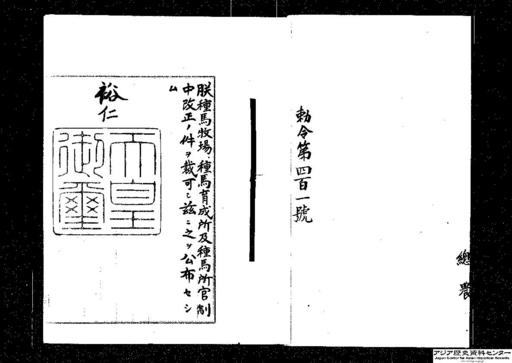 勅令第四百一號
總農
朕種馬牧場種馬育成所及種馬所官制
中改正ノ件ヲ裁可シ茲ニ之ヲ公布セシ
ム
裕仁
天皇
御璽
アジア歴史資料センター
Japan Center for Asian Historical Records